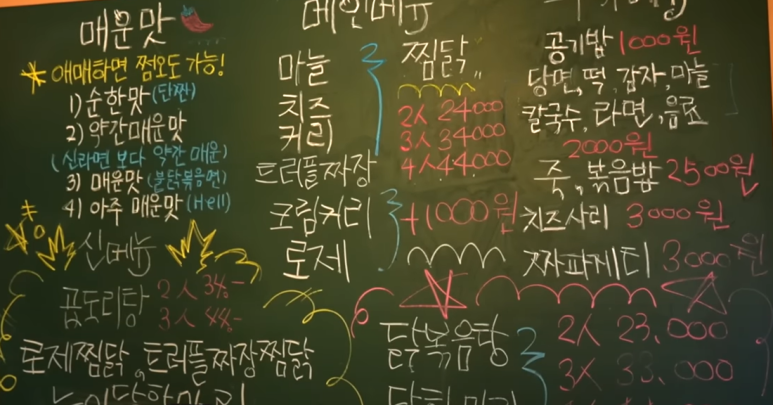 매운맛
* 애매하면 쩜오도 가능!
1) 순한맛 (단짠)
2) 약간매운맛
(신라면 보다 약간 매운)
3) 매운맛 (불닭볶음면)
4) 아주 매운맛 (Hell)
신메뉴
곱도리탕 2人 34,-
3人 44,-
로제찜닭, 트러플짜장찜닭
메인메뉴
마늘
치즈
커리
트러플짜장
크림커리
로제
찜닭
2人 24000
3人 34000
4人 44.000
+1000원
공기밥 1000원
당면, 떡, 감자, 마늘
칼국수, 라면, 음료
2000원
죽, 볶음밥 2500원
치즈사리 3000원
짜파게티 3000원
닭볶음탕
2人 23.000
3人 33.000